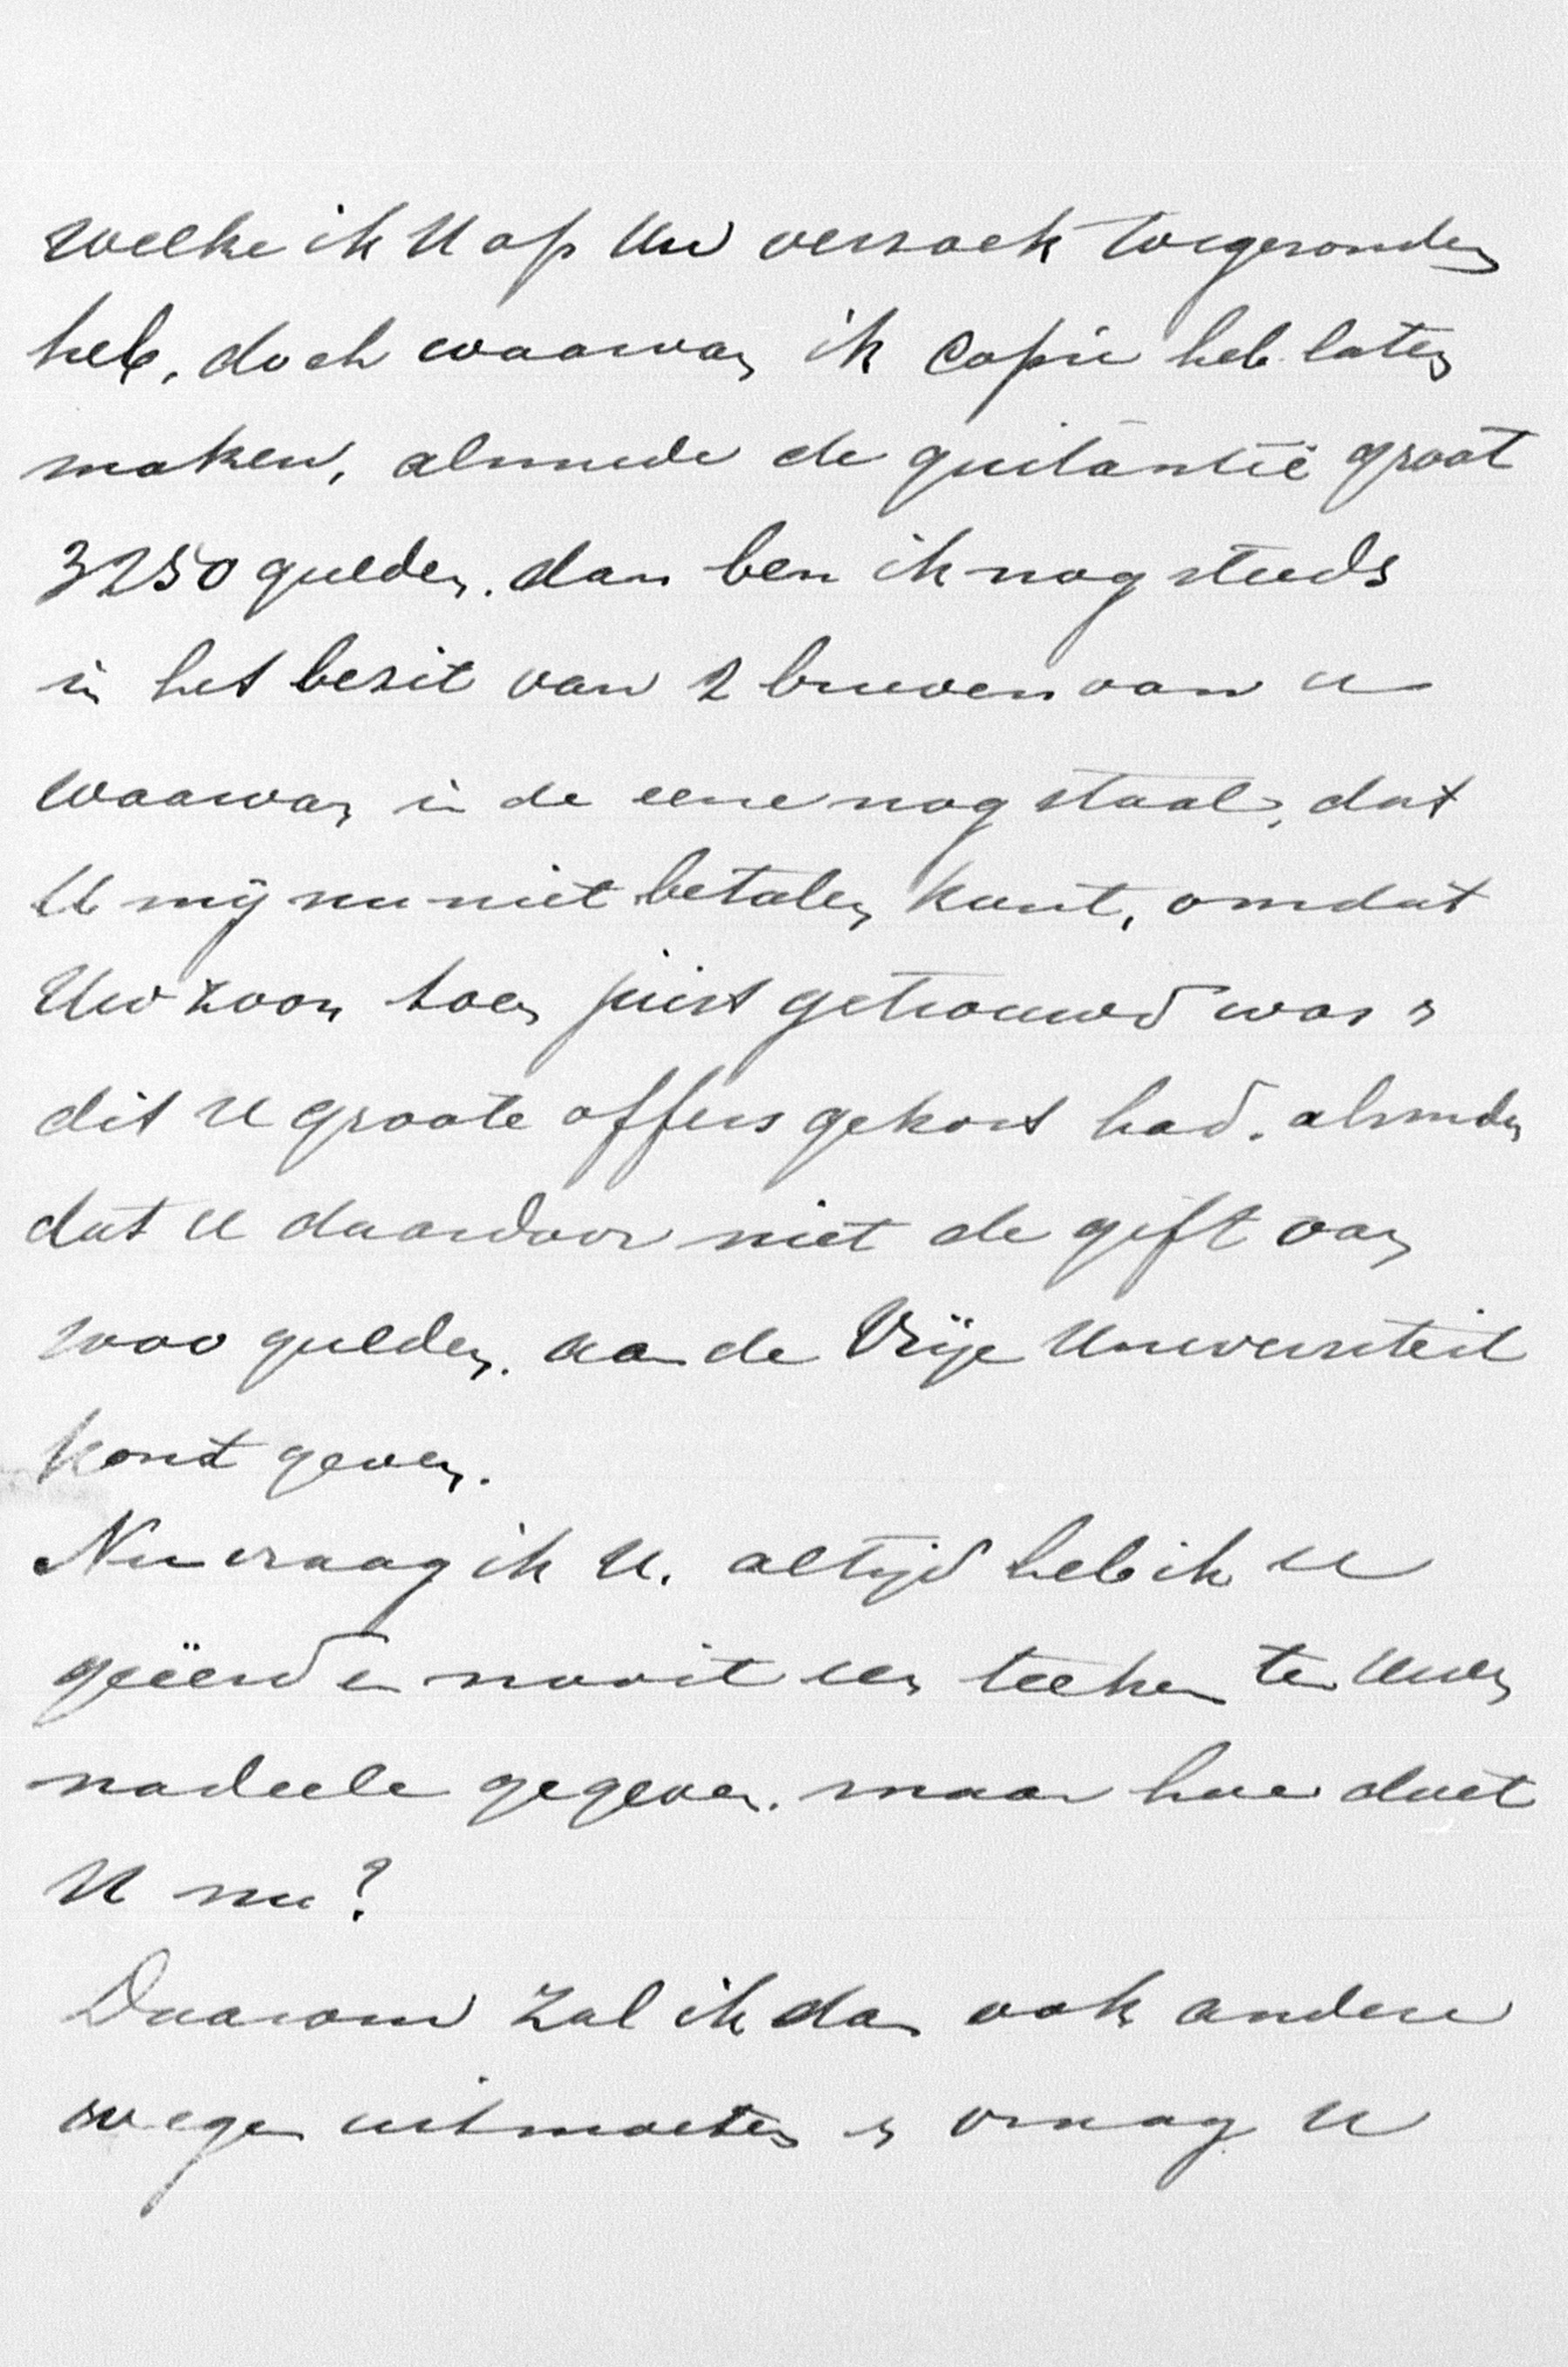 welke ik U op Uw verzoek toegezonden
heb, doch waarvan ik copie heb laten
maken, alsmede de quitantië groot
3250 gulden. dan ben ik nog steeds
in het bezit van 2 brieven van u
waarvan in de eene nog staat, dat
U mij nu niet betalen kunt, omdat
Uw zoon toen juist getrouwd was en
dit u groote offers gekost had. alsmede
dat u daardoor niet de gift van
1000 gulden. aan de Vrije Universiteit
kont geven.
Nu vraag ik U. altijd heb ik u
geëerd en nooit een teeken ten Uwen
nadeele gegeven. maar hoe doet
U nu?
Daarom zal ik dan ook andere
wegen uitmoeten en vraag u